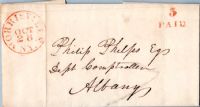 OCT
5
PAID
Philip Phelps Esq
Dept Comptroller
Albany